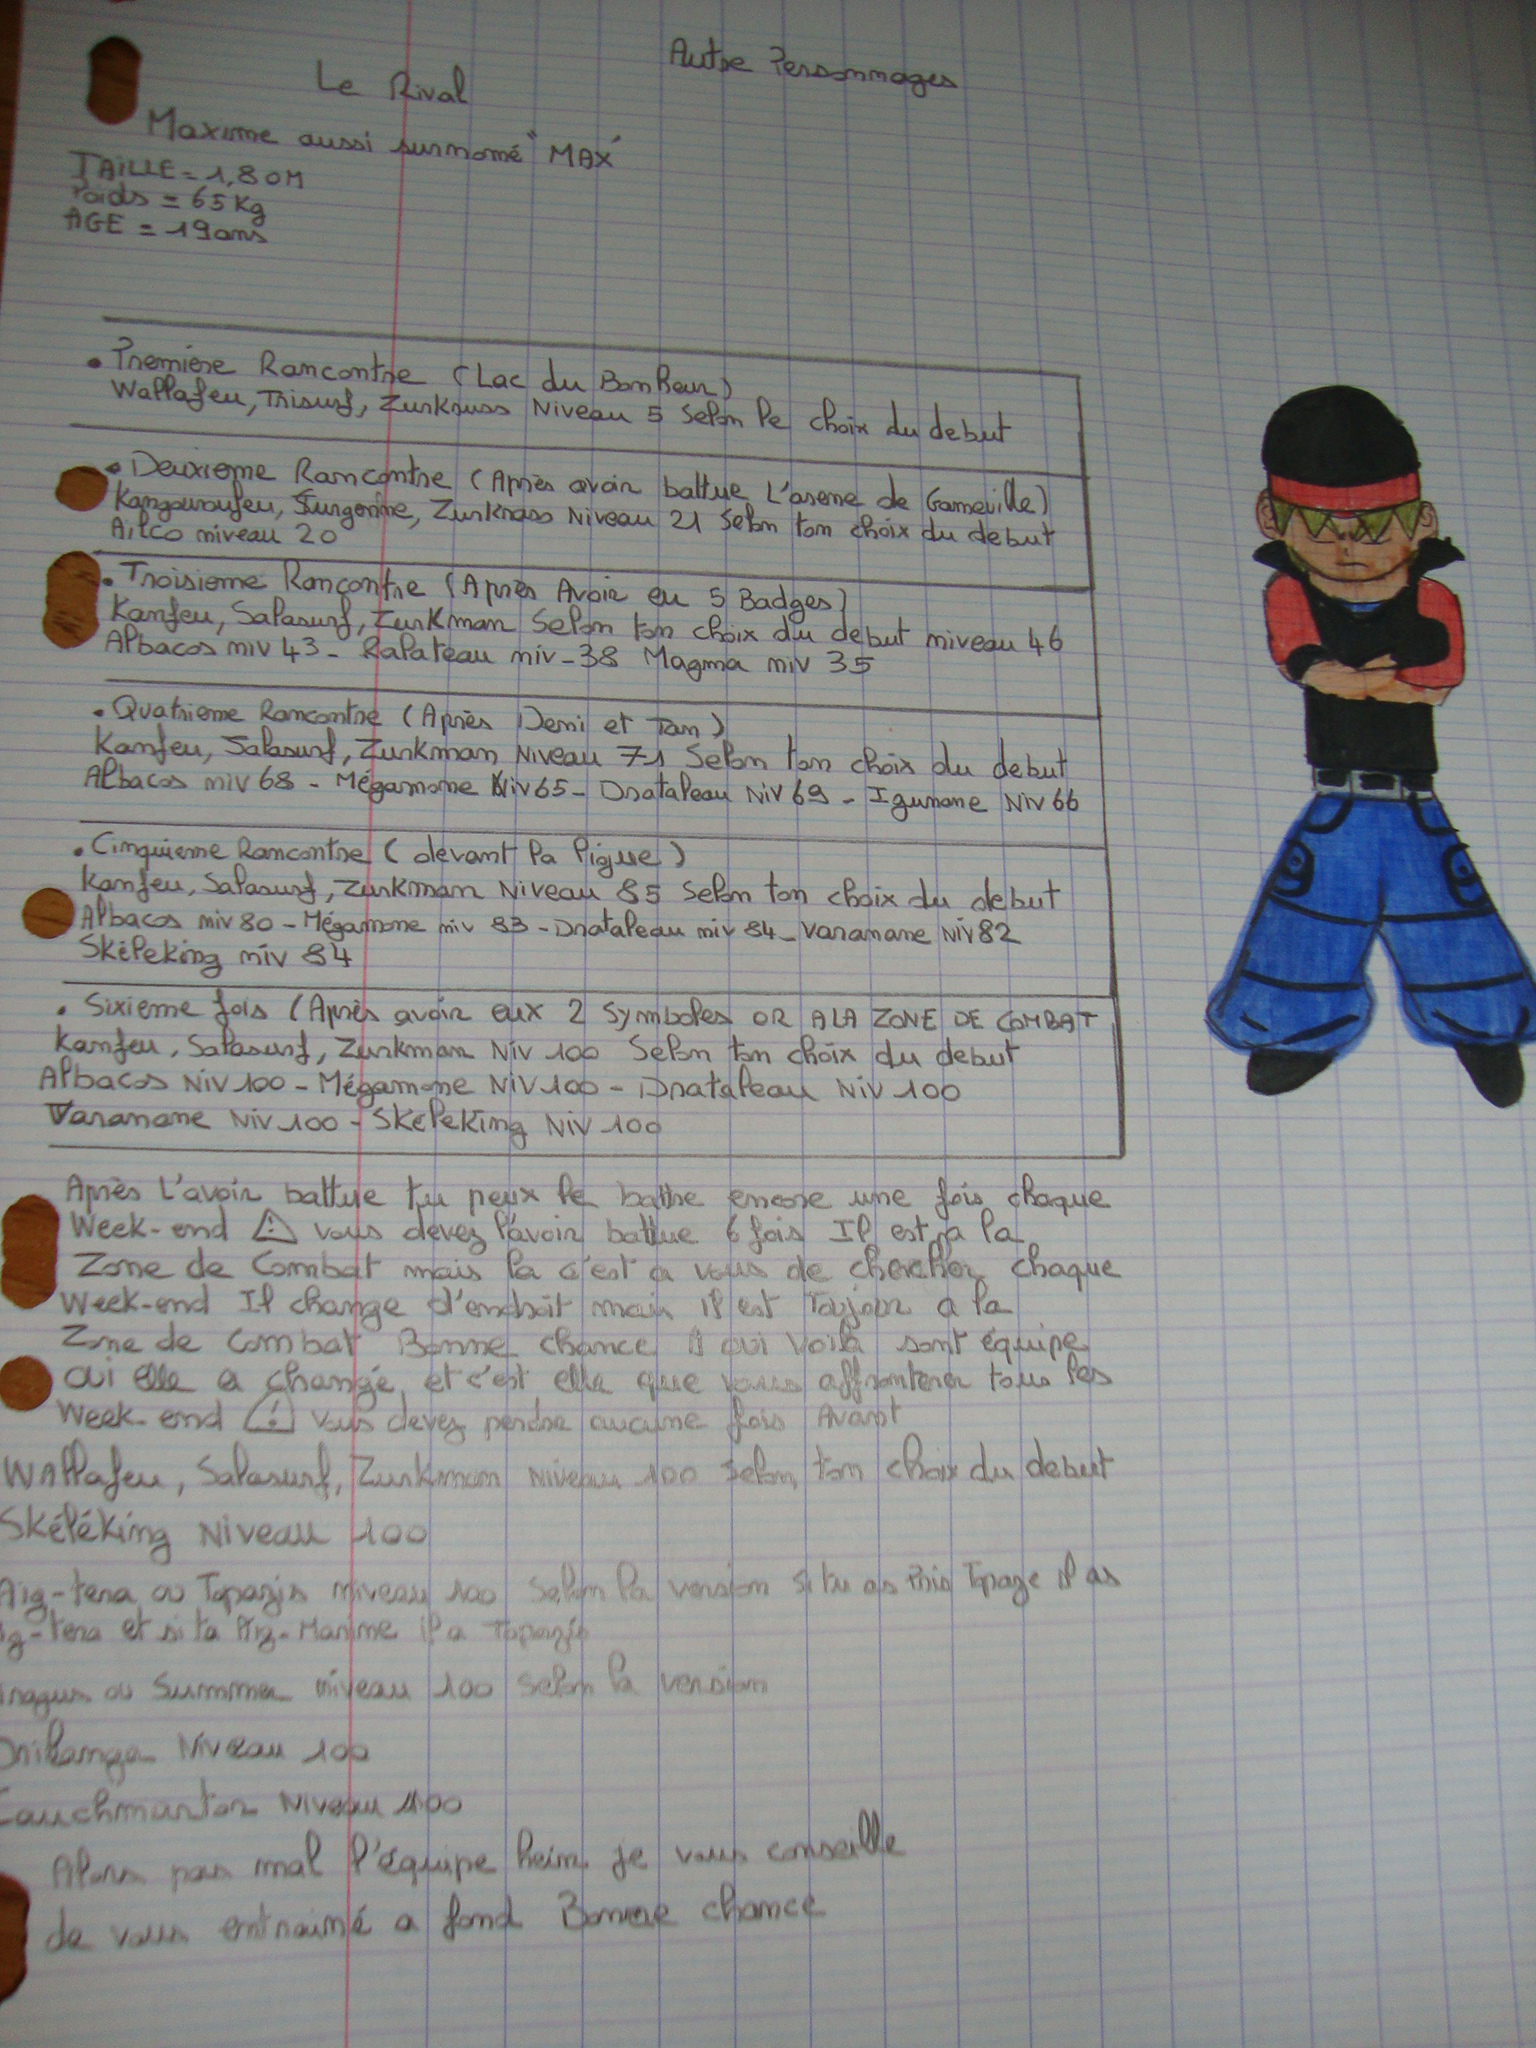 Autre Personnages
Le Rival
Maxime aussi surnomé "MAX"
TAiLLE = 1,80M
Poids = 65 Kg
AGE = 19 ans
• Premiere Rancontre (Lac du Bonheur)
Wallafeu, Trisurf, Zurkruss Niveau 5 Selon le choix du debut
• Deuxieme Rancontre (Après avoir battue L'arene de Gameville)
Kangouroufeu, Surgorine, Zurkrass Niveau 21 Selon ton choix du debut
Ailco niveau 20
• Troisieme Rancontre (Après Avoir eu 5 Badges)
Kanfeu, Salasurf, Zurkman Selon ton choix du debut niveau 46
Albacos niv 43 - Ralateau niv - 38 Magma niv 35
• Quatrieme Rancontre (Après Demi et Tan)
Kanfeu, Salasurf, Zurkman Niveau 71 Selon ton choix du debut
Albacos niv 68 - Mégamone Niv 65 - Drataleau Niv 69 - Igunane Niv 66
• Cinquieme Rancontre (devant la Pigue)
Kanfeu, Salasurf, Zurkman Niveau 85 Selon ton choix du debut
Albacos niv 80 - Mégamone niv 83 - Drataleau niv 84 - Varanane Niv 82
Skéleking niv 84
• Sixieme fois (Après avoir eux 2 Symboles OR A LA ZONE DE COMBAT
Kanfeu, Salasurf, Zurkman Niv 100 Selon ton choix du debut
Albacos Niv 100 - Mégamone Niv 100 - Drataleau Niv 100
Varanane Niv 100 - Skéleking Niv 100
Après L'avoir battue tu peux le battre encore une fois chaque
Week-end ⚠ vous devez l'avoir battue 6 fois Il est a la
Zone de Combat mais la c'est a vous de chercher chaque
Week-end Il change d'endroit mais il est Toujour a la
Zone de Combat Bonne chance A oui voila sont équipe
oui elle a changé et c'est elle que vous affronterer tous les
Week-end ⚠ vous devez perdre aucune fois Avant
Wallafeu, Salasurf, Zurkman Niveau 100 Selon ton choix du debut
Skéléking Niveau 100
Aig-tera ou Topazis niveau 100 Selon la version si tu as Pris Topaze il as
ig-tera et si ta Aig-Marine il a Topazis
ou Summer niveau 100 selon la version
Niveau 100
Cauchmartor Niveau 100
Alors pas mal l'équipe hein je vous conseille
de vous entrainé a fond Bonne chance